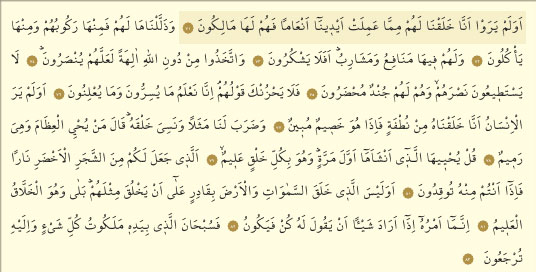 اَوَلَمْ يَرَوْا اَنَّا خَلَقْنَا لَهُمْ مِمَّا عَمِلَتْ اَيْدٖينَٓا اَنْعَاماً فَهُمْ لَهَا مَالِكُونَ ﴿٧١﴾ وَذَلَّلْنَاهَا لَهُمْ فَمِنْهَا رَكُوبُهُمْ وَمِنْهَا
يَأْكُلُونَ ﴿٧٢﴾ وَلَهُمْ فٖيهَا مَنَافِعُ وَمَشَارِبُۜ اَفَلَا يَشْكُرُونَ ﴿٧٣﴾ وَاتَّخَذُوا مِنْ دُونِ اللّٰهِ اٰلِهَةً لَعَلَّهُمْ يُنْصَرُونَۜ ﴿٧٤﴾ لَا
يَسْتَطٖيعُونَ نَصْرَهُمْۙ وَهُمْ لَهُمْ جُنْدٌ مُحْضَرُونَ ﴿٧٥﴾ فَلَا يَحْزُنْكَ قَوْلُهُمْۢ اِنَّا نَعْلَمُ مَا يُسِرُّونَ وَمَا يُعْلِنُونَ ﴿٧٦﴾ اَوَلَمْ يَرَ
الْاِنْسَانُ اَنَّا خَلَقْنَاهُ مِنْ نُطْفَةٍ فَاِذَا هُوَ خَصٖيمٌ مُبٖينٌ ﴿٧٧﴾ وَضَرَبَ لَنَا مَثَلاً وَنَسِيَ خَلْقَهُۜ قَالَ مَنْ يُحْيِ الْعِظَامَ وَهِيَ
رَمٖيمٌ ﴿٧٨﴾ قُلْ يُحْيٖيهَا الَّـذٖٓي اَنْشَاَهَٓا اَوَّلَ مَرَّةٍۜ وَهُوَ بِكُلِّ خَلْقٍ عَلٖيمٌۙ ﴿٧٩﴾ اَلَّذٖي جَعَلَ لَكُمْ مِنَ الشَّجَرِ الْاَخْضَرِ نَاراً
فَاِذَٓا اَنْتُمْ مِنْهُ تُوقِدُونَ ﴿٨٠﴾ اَوَلَيْسَ الَّذٖي خَلَقَ السَّمٰوَاتِ وَالْاَرْضَ بِقَادِرٍ عَلٰٓى اَنْ يَخْلُقَ مِثْلَهُمْۜ بَلٰى وَهُوَ الْخَلَّاقُ
الْعَلٖيمُ ﴿٨١﴾ اِنَّـمَٓا اَمْرُهُٓ اِذَٓا اَرَادَ شَيْـٔاً اَنْ يَقُولَ لَهُ كُنْ فَيَكُونُ ﴿٨٢﴾ فَسُبْحَانَ الَّذٖي بِيَدِهٖ مَلَكُوتُ كُلِّ شَيْءٍ وَاِلَيْهِ
تُرْجَعُونَ ﴿٨٣﴾